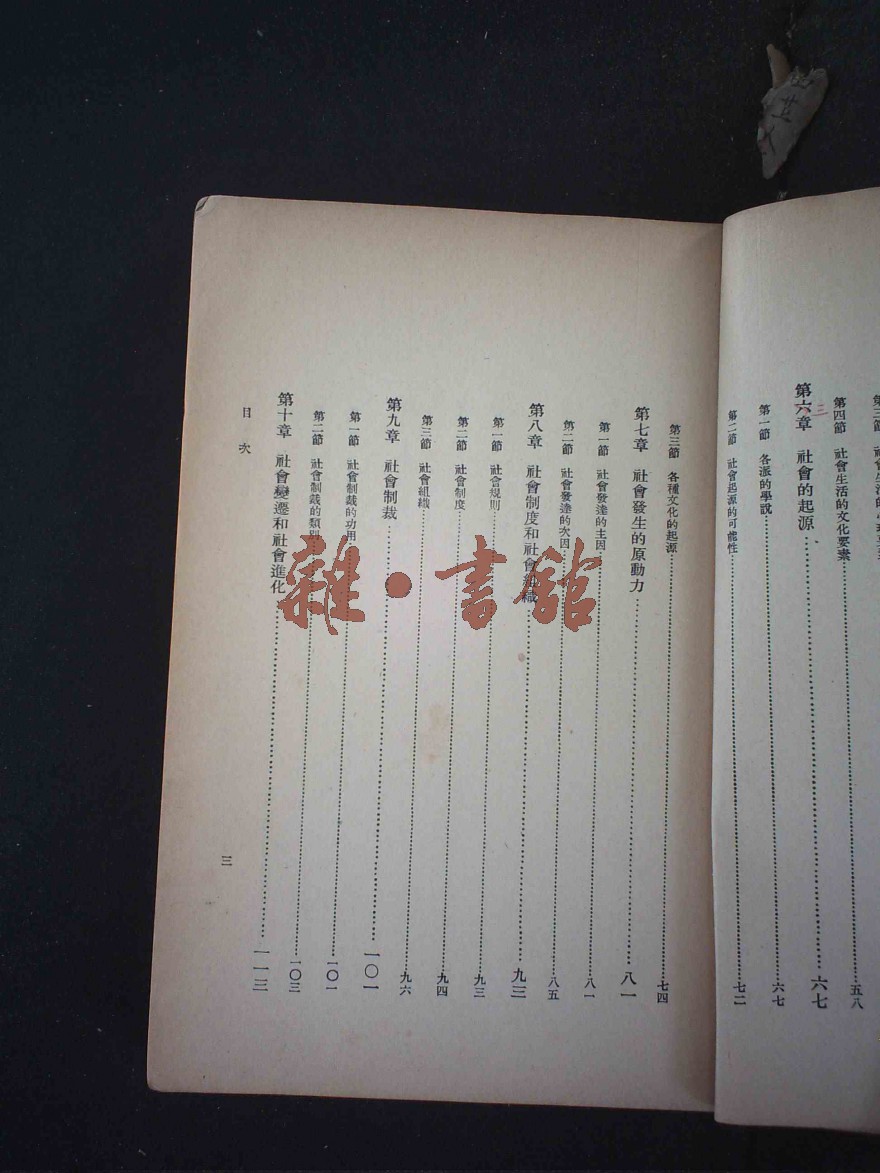 第四節 社會生活的文化要素 五八
第六章 社會的起源 六七
三
第一節 各派的學說 六七
第二節 社會起源的可能性 七二
第三節 各種文化的起源 七四
第七章 社會發生的原動力 八一
第一節 社會發達的主因 八一
第二節 社會發達的次因 八五
第八章 社會制度和社會組織 九三
第一節 社會規則 九三
第二節 社會制度 九四
第三節 社會組織 九六
第九章 社會制裁 一〇一
第一節 社會制裁的功用 一〇一
第二節 社會制裁的類別 一〇三
第十章 社會變遷和社會進化 一一三
目次
三
雜·書館